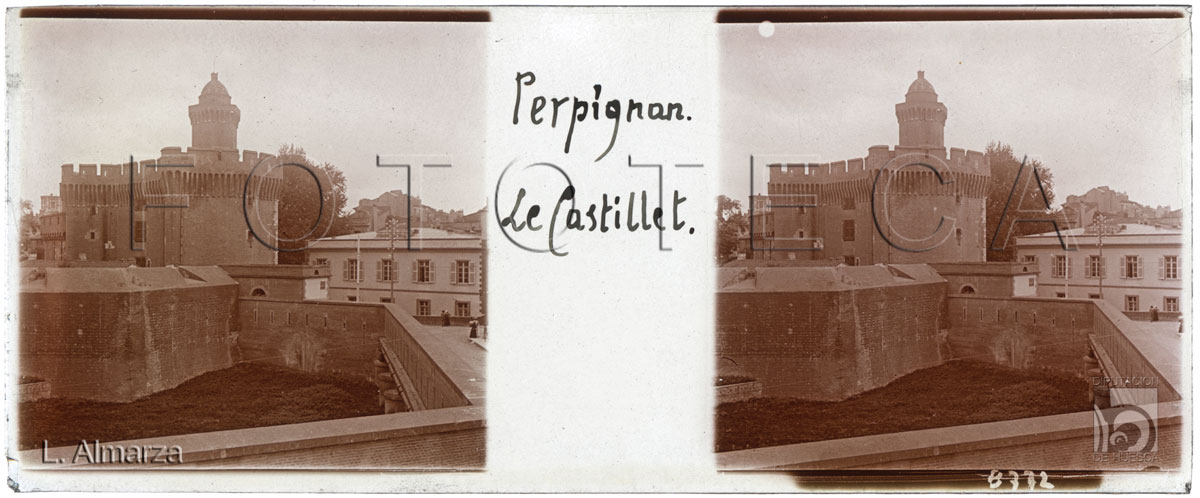 Perpignan.
Le Castillet.
FOTOTECA
L. Almarza
DIPUTACIÓN
DE HUESCA
8772